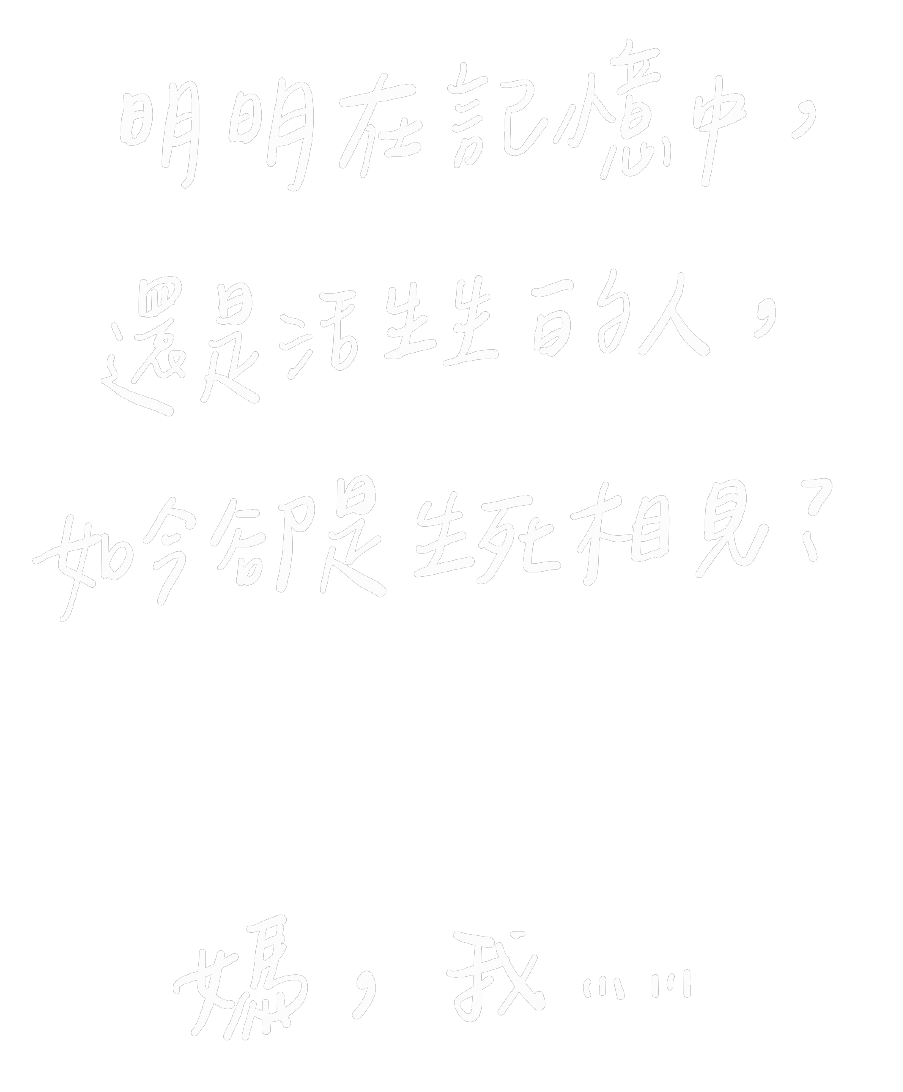 明明在記憶中，
還是活生生的人，
如今卻是生死相見？
媽，我……